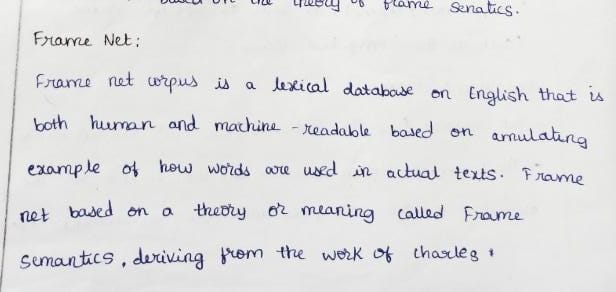 theory of frame Senatics.
Frame Net:
Frame net corpus is a lexical database on English that is
both human and machine - readable based on amulating
example of how words are used in actual texts. Frame
net based on a theory or meaning called Frame
Semantics, deriving from the work of charles